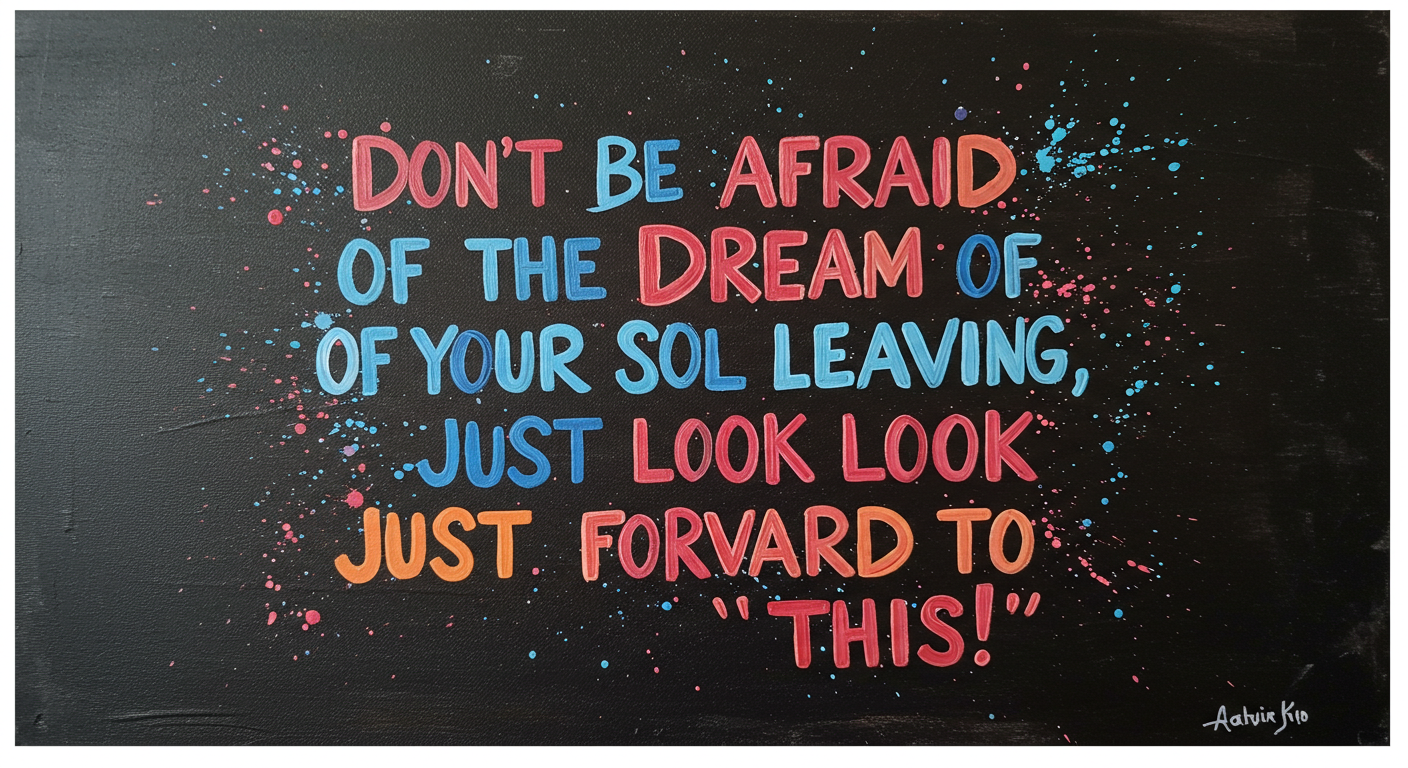 DON'T BE AFRAID
OF THE DREAM OF
OF YOUR SOL LEAVING,
JUST LOOK LOOK
JUST FORVARD TO
"THIS!"